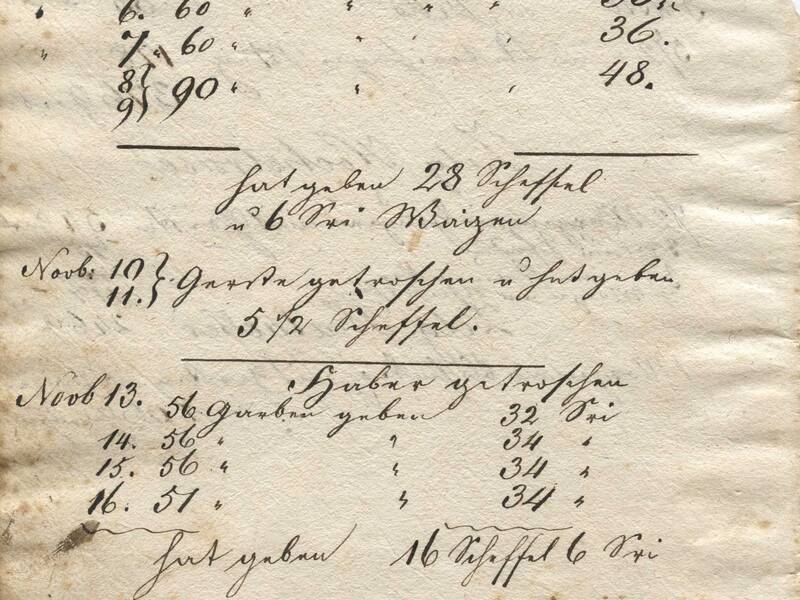 " 6. 60 " " " "
" 7. 60 " " " 36.
8} 90 " " " 48.
9}
hat geben 28 Scheffel
u 6 Sri Waizen
Novb: 10} Gerste getroschen u hat geben
11.}
5 1/2 Scheffel.
Haber getroschen
Novb 13. 56 Garben geben 32 Sri
14. 56 " " 34 "
15. 56 " " 34 "
16. 51 " " 34 "
hat geben 16 Scheffel 6 Sri